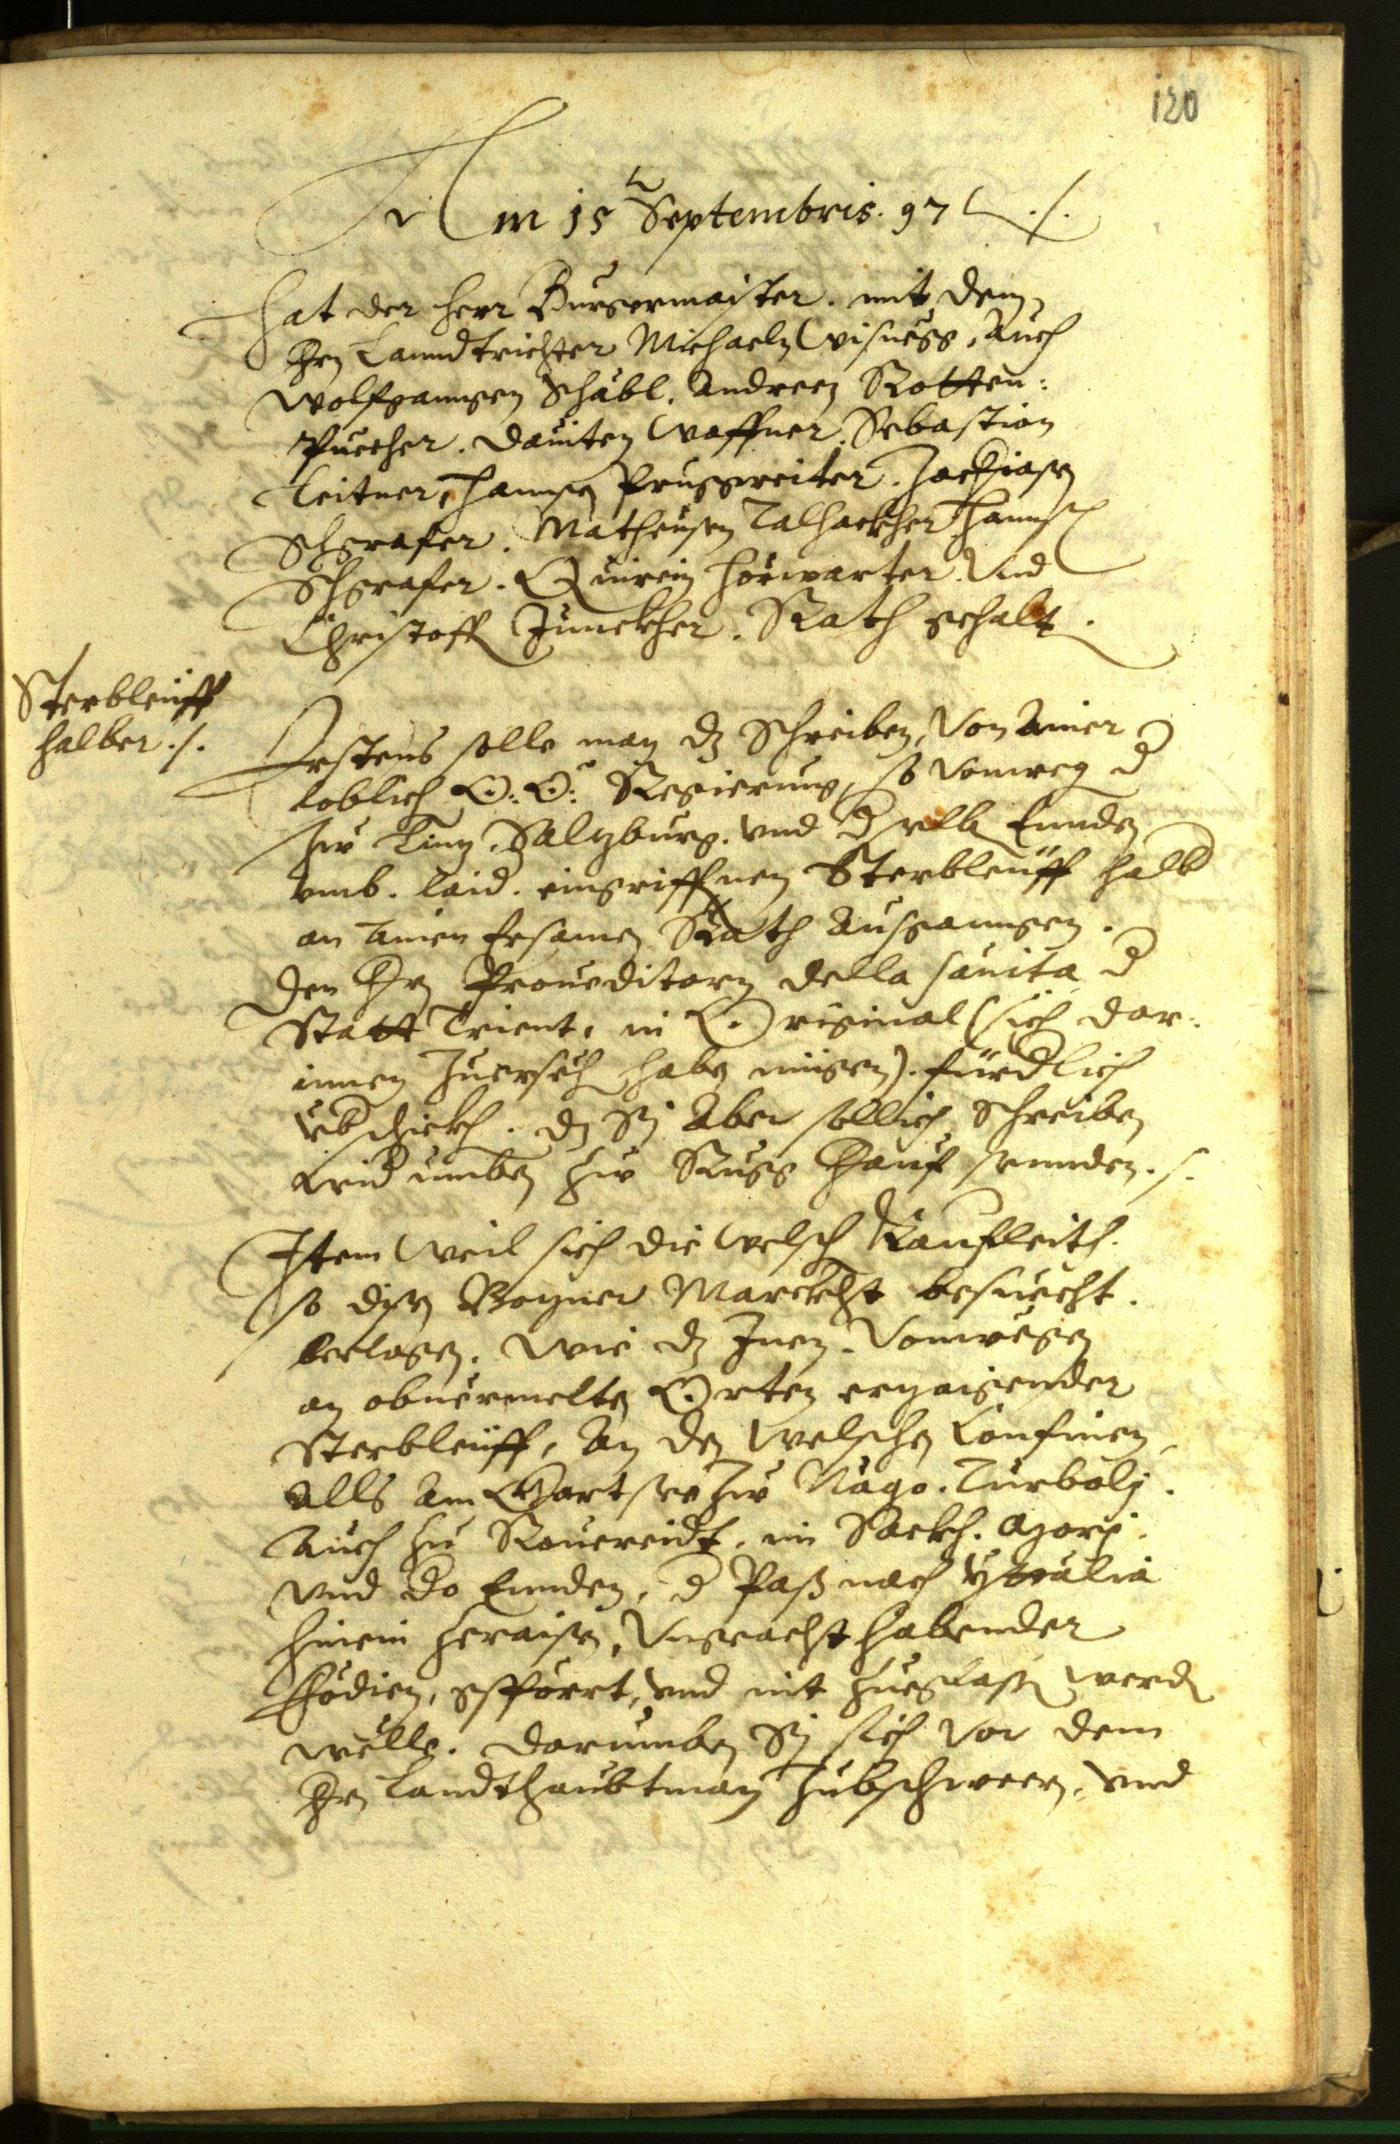 120
Am 15 Septembris. 97 ./.
Hat der herr Burgermaister. mit dem
Hrn Lanndtrichter Michaeln Visuess, Auch
Wolfganngen Schäbl. Andreen Rotten:
Puecher. Dauiten Waffner. Sebastian
Leitner, Hannsn Prugreiter. Zachiasn
Schgrafer. Matheusen Talhackher Hanns
Schgrafer. Quirein Hörwarter. Vnd
Christoff Junckher. Rath gehalt.
Sterbleüff
halber ./.
Erstens solle man dz Schreiben, Von Ainer
loblich O: Ö: Regierung, so Vonweg d
zw Linz, Salzburg. vnd d selb Ennden
vmb. laid. eingriffnen Sterbleüff halb
an ainen Ersamen Rath Ausganngen.
Den Hrn Proueditorn della sanita d
Statt Trient, in Original (sich dar:
innen Zuersech haben mügen). fürdlich
vbschickh. dz Sy Aber sollich Schreiben
widumben zw Rugg Herauf sennden. ./.
Item Weil sich die Welsch Kaufleith.
so disen Bozner Marckht besuecht.
berlagen. Wie dz Inen. Vonwegen
an obuermelten Orten erzaigender
Sterbleüff, An den Welschen Confinen,
Alls Am Gartsee zw Nago. Turbolj.
Auch zu Rouereidt. im Sackh. Azorj.
vnd do Ennden, d Paß nach Ytalia
hinein zeraisen, Vngeacht habender
Fedien, gspörrt, vnd nit zuegelassen werd
wölle. Darumben Sy sich Vor dem
Hrn Landthaubtman zubschweren, vnd